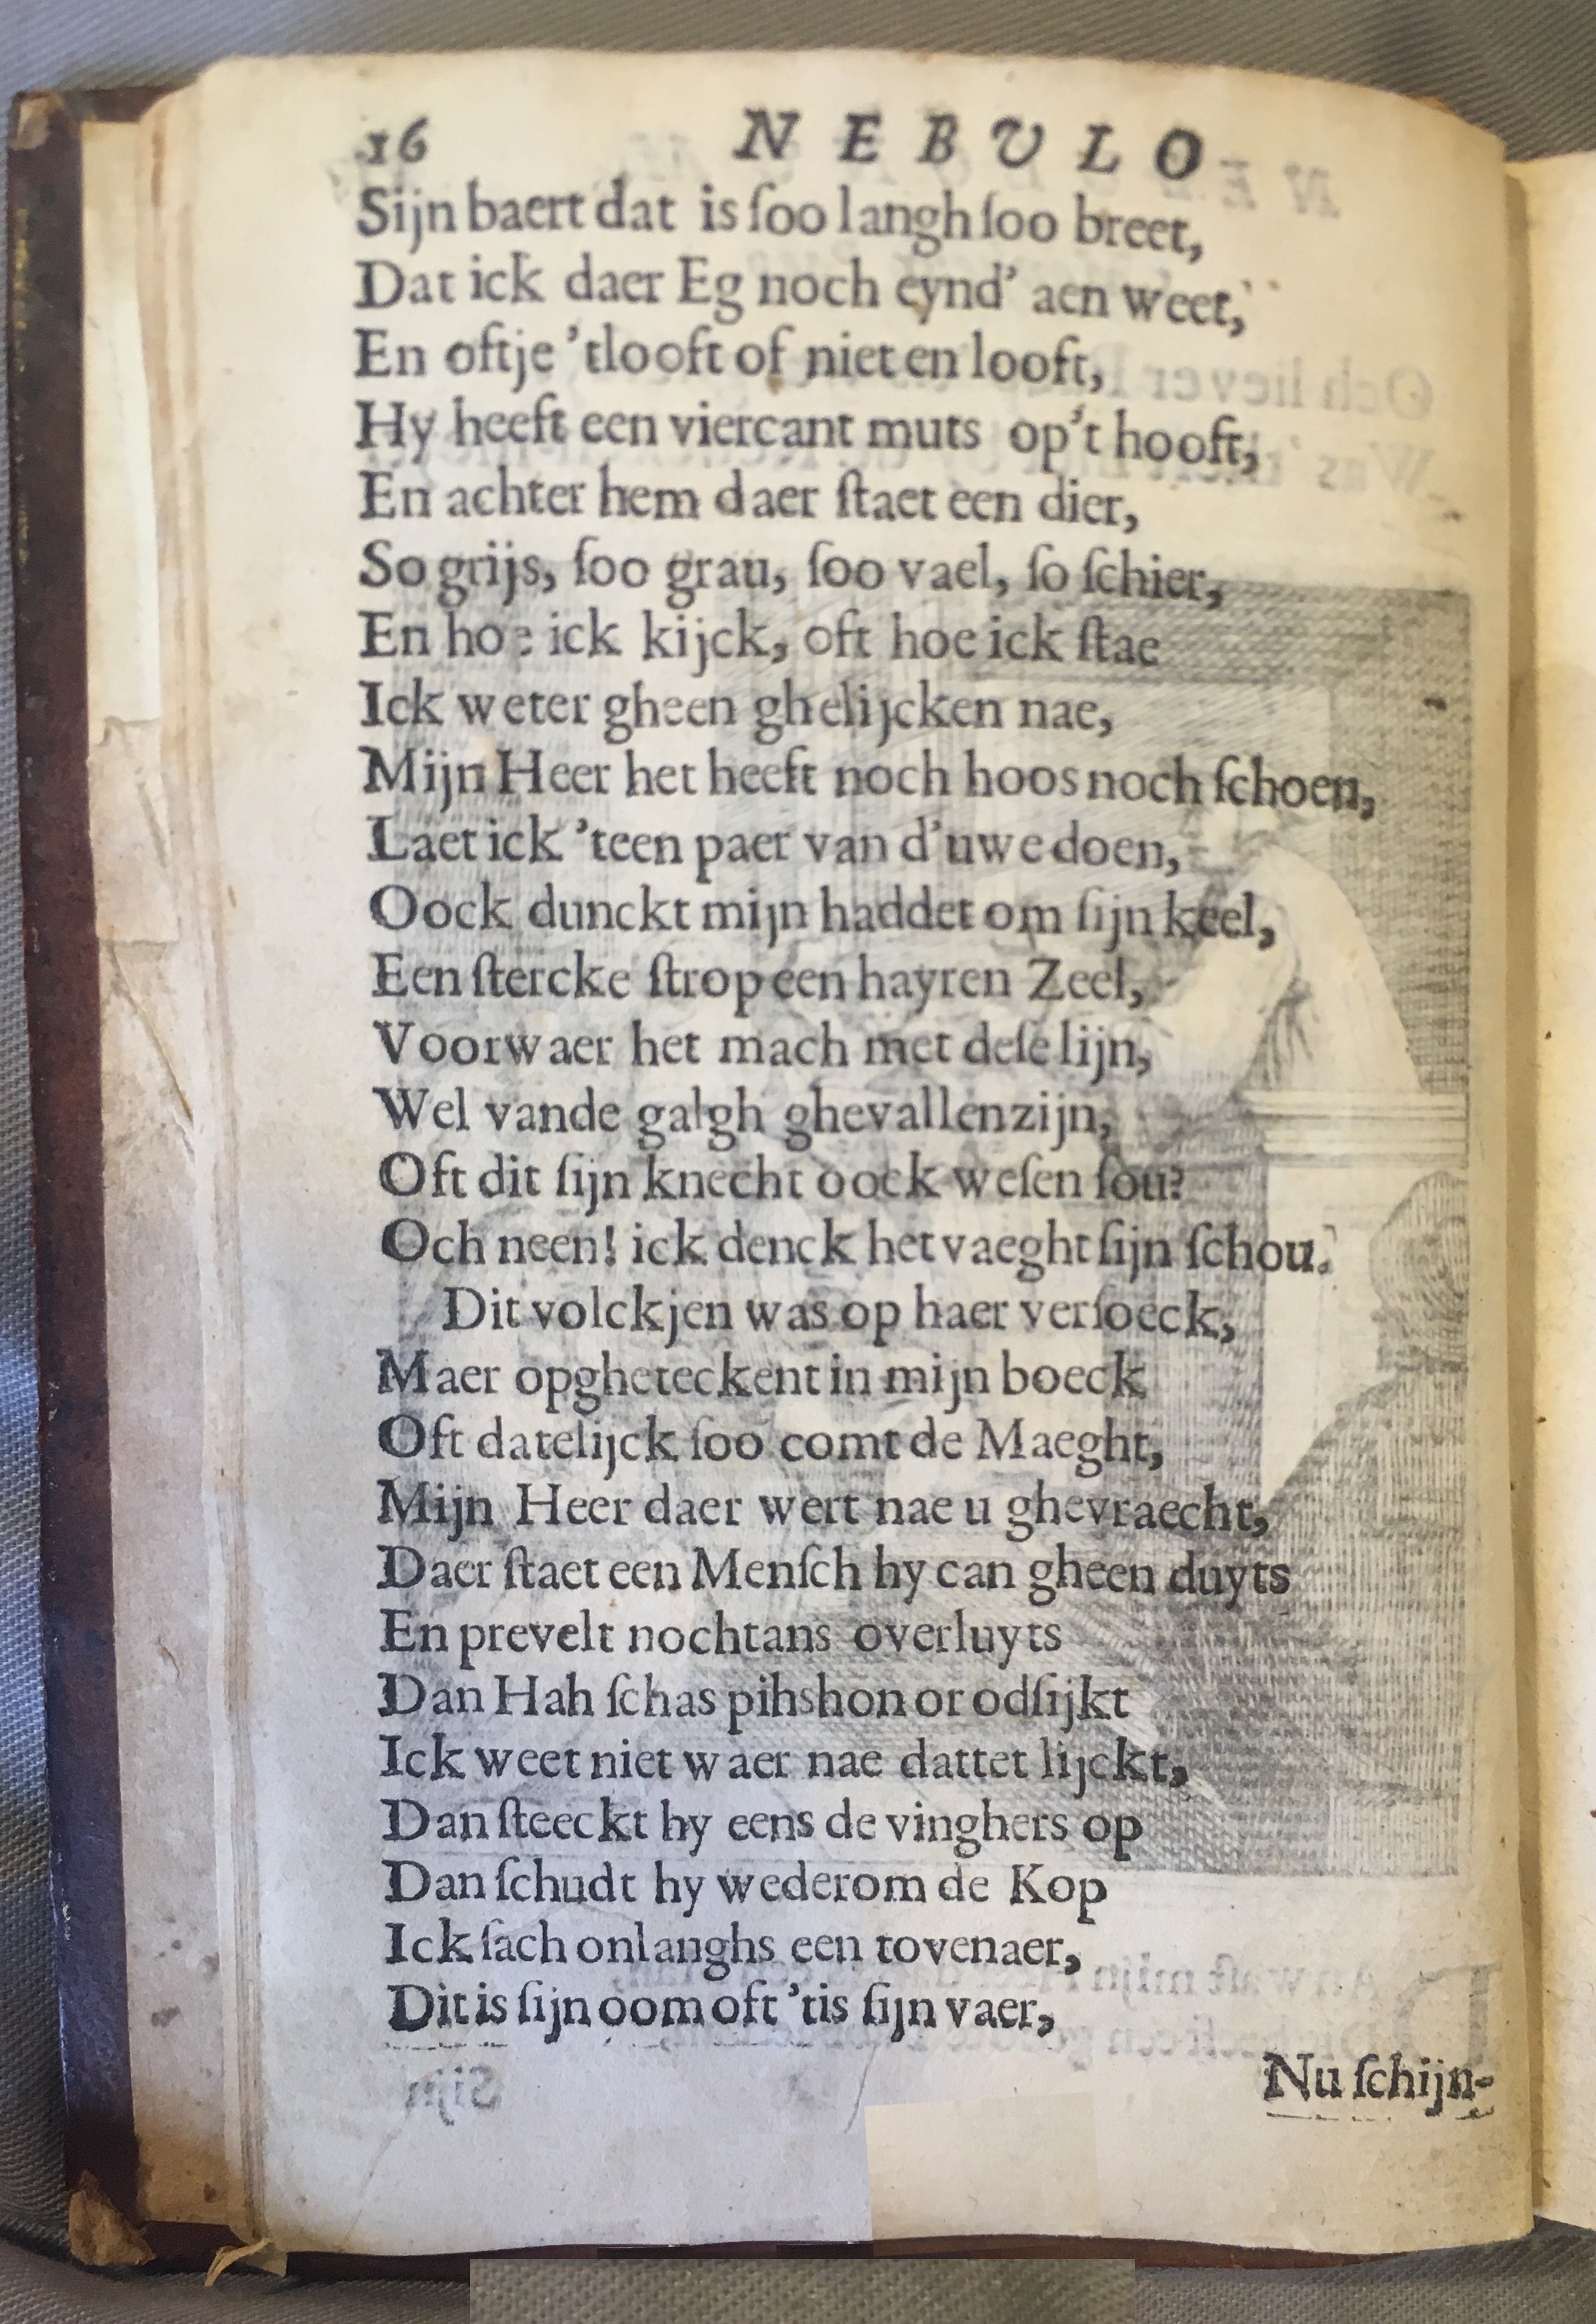 16 NEBVLO
Sijn baert dat is ſoo langh ſoo breet,
Dat ick daer Eg noch eynd' aen weet,
En oftje 'tlooft of niet en looft,
Hy heeft een viercant muts op't hooft,
En achter hem daer ſtaet een dier,
So grijs, ſoo grau, ſoo vael, ſo ſchier,
En hoe ick kijck, oft hoe ick ſtae
Ick weter gheen ghelijcken nae,
Mijn Heer het heeft noch hoos noch ſchoen,
Laet ick 'teen paer van d'uwe doen,
Oock dunckt mijn haddet om ſijn keel,
Een ſtercke ſtrop een hayren Zeel,
Voorwaer het mach met deſe lijn,
Wel vande galgh ghevallen zijn,
Oft dit ſijn knecht oock weſen ſou?
Och neen! ick denck het vaeght ſijn ſchou.
Dit volckjen was op haer verſoeck,
Maer opgheteckent in mijn boeck
Oft datelijck ſoo comt de Maeght,
Mijn Heer daer wert nae u ghevraecht,
Daer ſtaet een Menſch hy can gheen duyts
En prevelt nochtans overluyts
Dan Hah ſchas pihshon or odſijkt
Ick weet niet waer nae dattet lijckt,
Dan ſteeckt hy eens de vinghers op
Dan ſchudt hy wederom de Kop
Ick ſach onlanghs een tovenaer,
Dit is ſijn oom oft 'tis ſijn vaer,
Nu ſchijn-